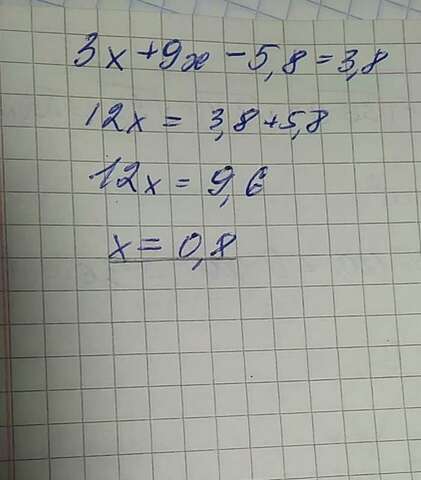 3x+9x-5,8=3,8
12x = 3,8+5,8
12x = 9,6
x = 0,8